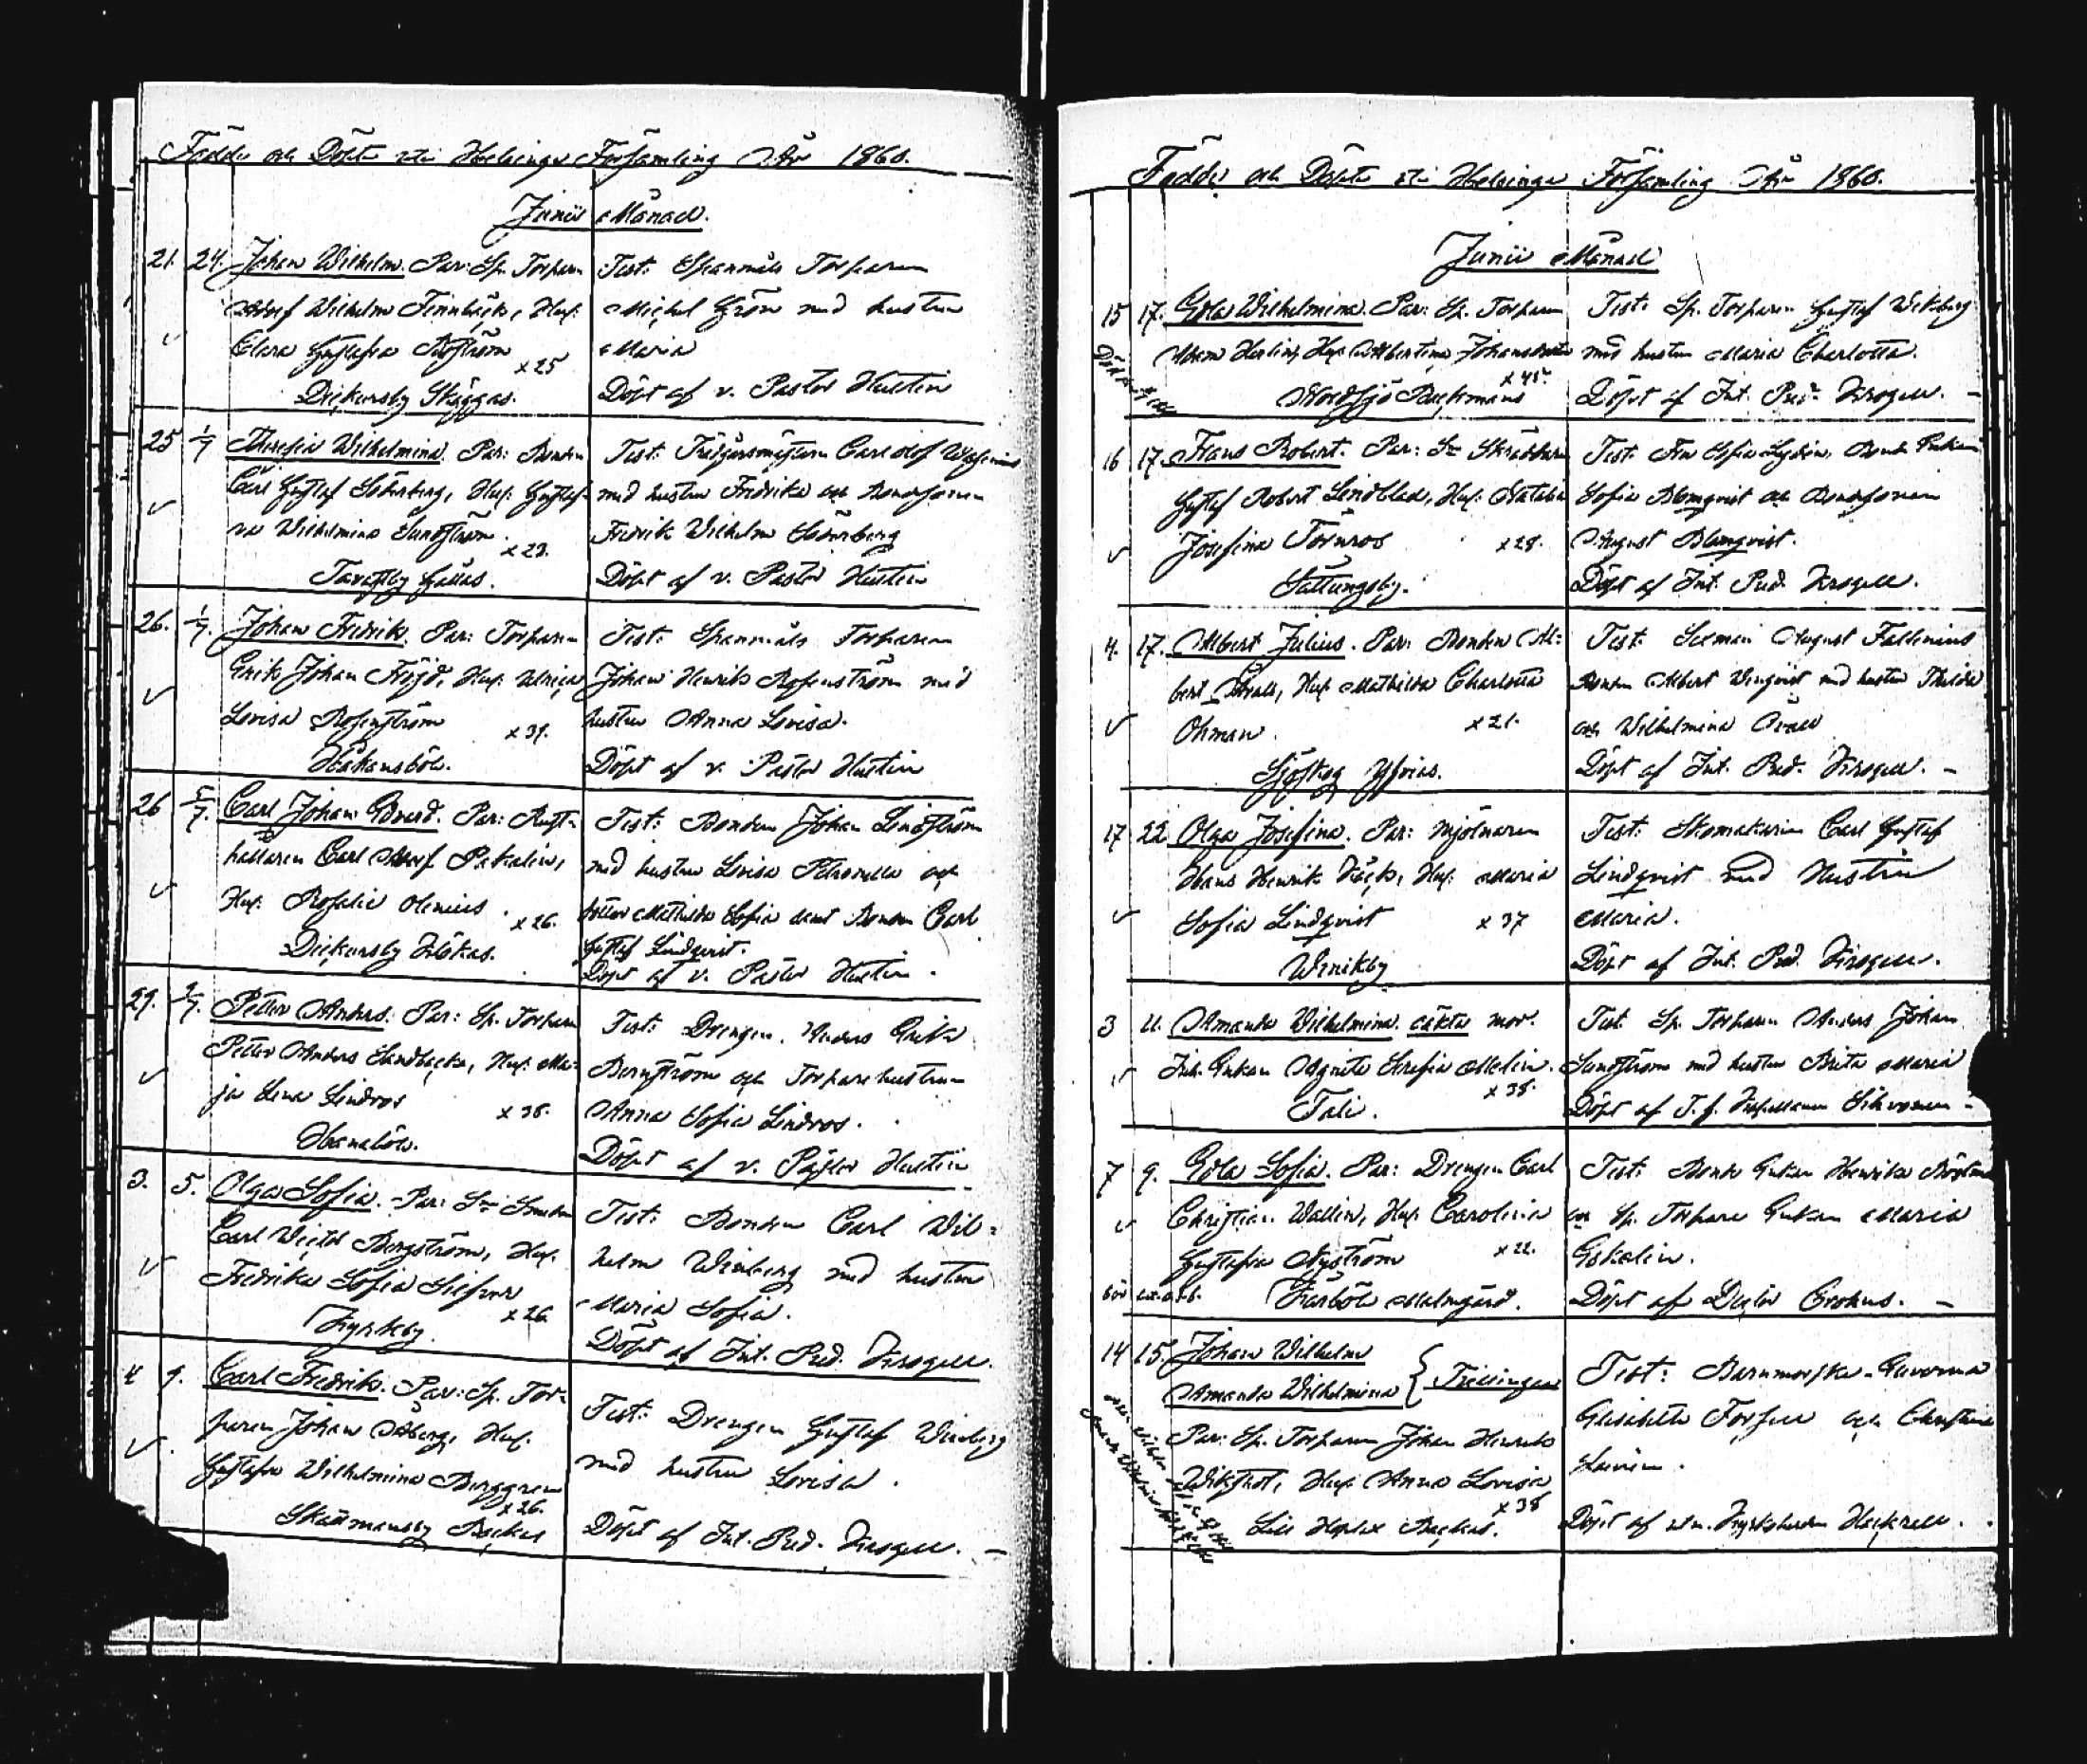 Födde och Döpte uti Helsinge Församling År 1860.
Junii Månad.
21. 24. Johan Wilhelm. Par: Sp. Torparn
Adolf Wilhelm Finnbäck, Hu:
Clara Gustafva Nyström x 25
Dickursby Skäggas.
Test: Spannmåls Torparen
Michel Grön med hustru
Maria
Döpt af v. Pastor Hustin
25 1/7 Theresia Wilhelmina. Par: Bonden
Carl Gustaf Söderberg, Hu: Gustaf-
va Wilhelmina Sundström x 23.
Tavastby Gällas.
Test: Trädgårsmästaren Carl Olof
med hustru Fredrika och Bondsonen
Fredrik Wilhelm Söderberg
Döpt af v. Pastor Hustin
26. 1/7. Johan Fredrik. Par: Torparen
Erik Johan Fröjd, Hu: Ulrica
Lovisa Rosenström x 31.
Håkansböle.
Test: Spannmåls Torparen
Johan Henrik Rosenström med
hustru Anna Lovisa.
Döpt af v. Pastor Hustin
26 /7. Carl Johan Edvard. Par: Rust-
hållaren Carl Adolf Pakalin,
Hu: Rosalie Olenius x 26.
Dickursby
Test: Bonden Johan Lindström
med hustru Lovisa Petronella och
dotter Mathilda Sofia samt Bonden Carl
Gustaf Lindqvist.
Döpt af v. Pastor Hustin.
29. /7. Petter Anders. Par: Sp. Torparn
Petter Anders Sandbacka, Hu: Ma-
ja Lena Lindros x 38.
Hanaböle.
Test: Drengen Anders Erik
Bergström och Torparehustrun
Anna Sofia Lindros.
Döpt af v. Pastor Hustin
3. 5. Olga Sofia. Par: Sn Smeden
Carl Victor Bergström, Hu:
Fredrika Sofia Silfver x 26
Kyrkby.
Test: Bonden Carl Wil-
helm Winberg med hustru
Maria Sofia.
Döpt af Int. Pred. Krogell.
4 9. Carl Fredrik. Par: Sp. Tor-
paren Johan Åberg, Hu:
Gustafva Wilhelmina Berggren x 26.
Skattmansby Backas
Test: Drengen Gustaf Winberg
med hustru Lovisa.
Döpt af Int. Pred. Krogell. —
Födde och Döpte uti Helsinge Församling År 1860.
Junii Månad
15 17. Edla Wilhelmina. Par: Sp. Torparen
Adam Herling, Hu: Albertina Johansdotter x 45.
Nordsjö Backmans
Test: Sp. Torparen Gustaf Wikberg
med hustru Maria Charlotta.
Döpt af Int. Pred. Krogell. —
16 17. Frans Robert. Par: Sn Skräddaren
Gustaf Robert Lindblad, Hu: Natalia
Josefina Törnros x 28.
Sottungsby.
Test:
Sofia Blomqvist och Bondsonen
August Blomqvist.
Döpt af Int. Pred. Krogell.
4. 17. Albert Julius. Par: Bonden Al-
bert Öhrall, Hu: Mathilda Charlotta
Öhman. x 21.
Sjöskog
Test: Sexman August Fallenius
Bonden Albert Winqvist med hustru Thilda
och Wilhelmina
Döpt af Int. Pred. Krogell. —
17 22 Olga Josefina. Par: Mjölnaren
Hans Henrik Käck, Hu: Maria
Sofia Lindqvist x 37
Winikby
Test: Skomakaren Carl Gustaf
Lindqvist med Hustru
Maria.
Döpt af Int. Pred. Krogell.
3 11. Amanda Wilhelmina. oäkta mor:
Inh. Enkan Agneta Serafia Melin. x 38.
Tali.
Test: Sp. Torparen Anders Johan
Sundström med hustru Brita Maria
Döpt af T. f. Kapellanen
7 9. Edla Sofia. Par: Drengen Carl
Christian Wallin, Hu: Carolina
Gustafva Nyström x 22.
Kårböle Malmgård.
Test: Bonde Enkan Henrika
och Sp. Torpare Enkan Maria
Eskolin.
Döpt af Doctor Crohns. —
14 15. Johan Wilhelm
Amanda Wilhelmina } Tvillingar
Par: Sp. Torparen Johan Henrik
Wikstedt, Hu: Anna Lovisa x 38
Lill Hoplax Backas.
Test: Barnmorska
Elisabeth Forssell och Christina
Döpt af Kyrkoherden Heckrell.